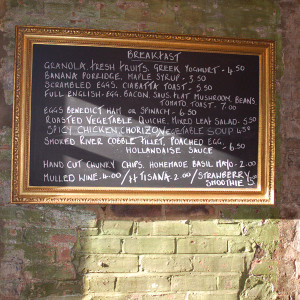 BREAKFAST
GRANOLA, FRESH FRUITS, GREEK YOGHURT - 4.50
BANANA PORRIDGE, MAPLE SYRUP - 3.50
SCRAMBLED EGGS, CIABATTA TOAST - 5.50
FULL ENGLISH - EGG, BACON, SAUS, FLAT MUSHROOM, BEANS,
TOMATO TOAST - 7.00
EGGS BENEDICT HAM OR SPINACH - 6.50
ROASTED VEGETABLE QUICHE, MIXED LEAF SALAD - 5.50
SPICY CHICKEN, CHORIZO VEGETABLE SOUP 4.50
SMOKED RIVER COBBLE FILLET, POACHED EGG,
HOLLANDAISE SAUCE - 6.50
HAND CUT CHUNKY CHIPS, HOMEMADE BASIL MAYO - 2.00
MULLED WINE 4.00 / HTISANA - 2.00 / STRAWBERRY
SMOOTHIE